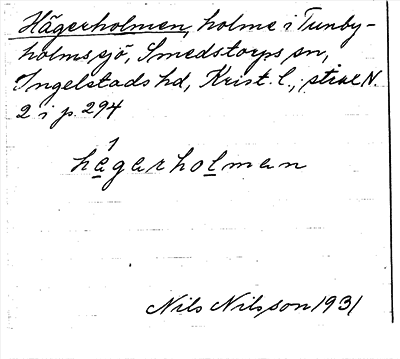 Hägerholmen, holme i Tunby-
holmssjö, Smedstorps sn,
Ingelstads hd, Krist. l.; N.
2 i p. 294
hägarholman
Nils Nilsson 1931